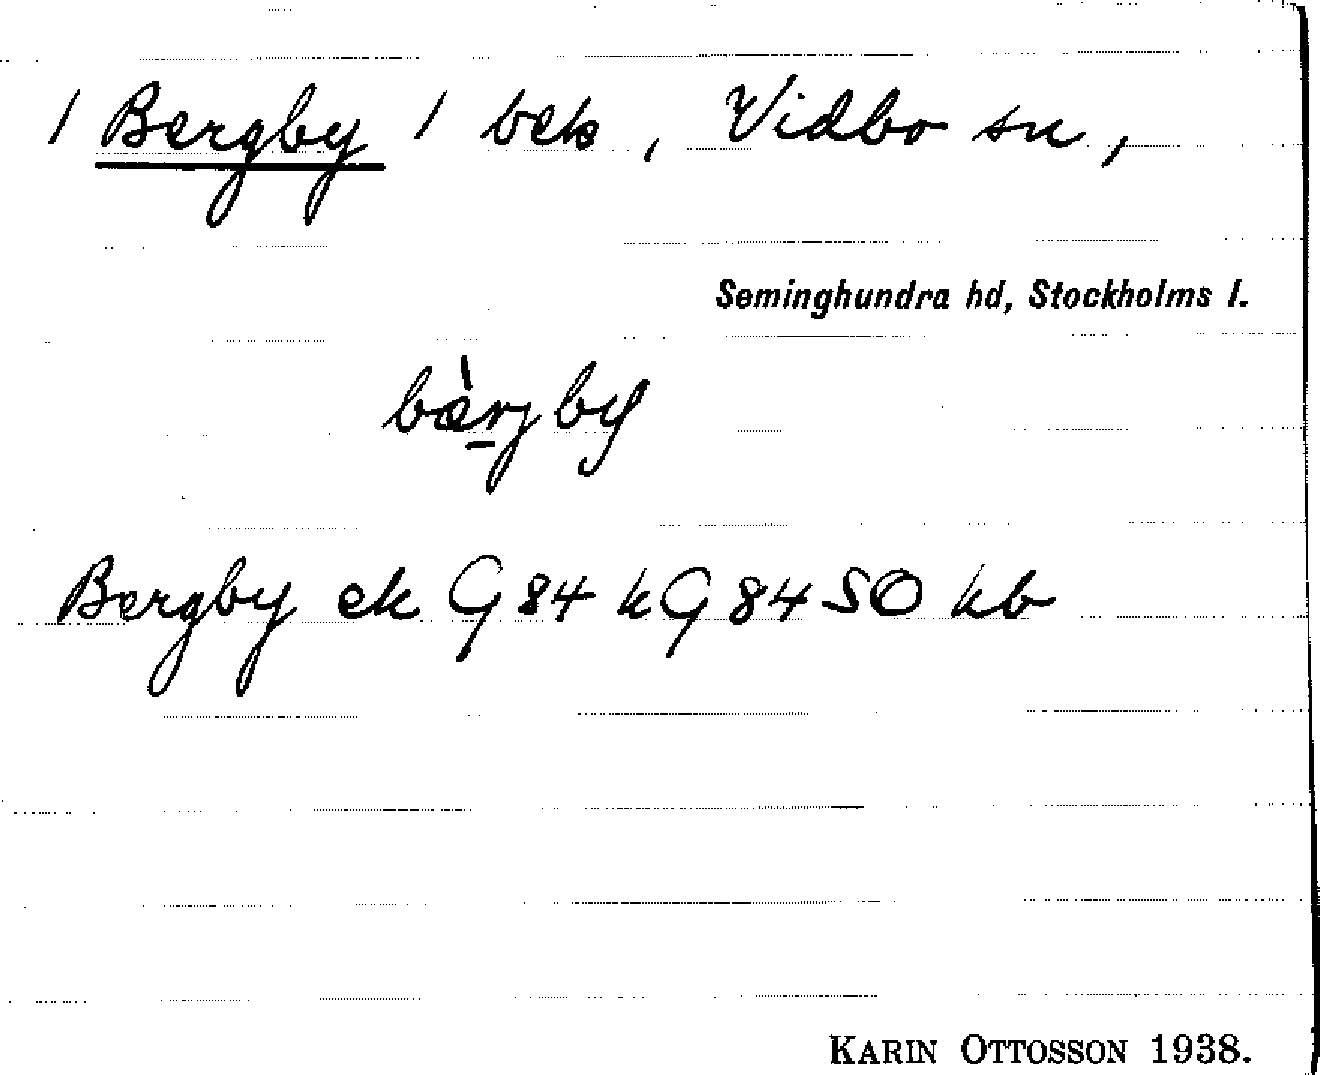 / Bergby / bek, Vidbo sn,
Seminghundra hd, Stockholms l.
bæ̀rjby
Bergby ek G 84 kG 84 SO kb
KARIN OTTOSSON 1938.